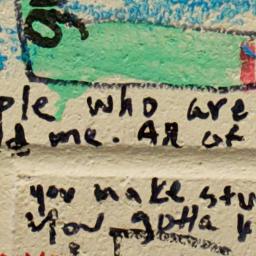 ple who are
ld me. All of
you make stu
you gotta k